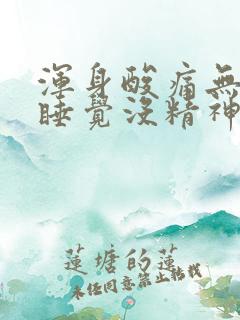 渾身酸痛無
睡覺沒精神
蓮塘的蓮
未經同意禁止轉載